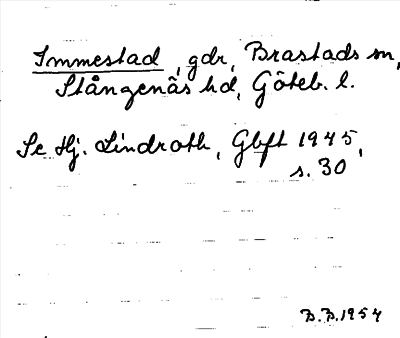 Immestad, gdr, Brastads sn,
Stångenäs hd, Göteb. l.
Se Hj. Lindroth, Gbft 1945,
s. 30
B.B. 1954